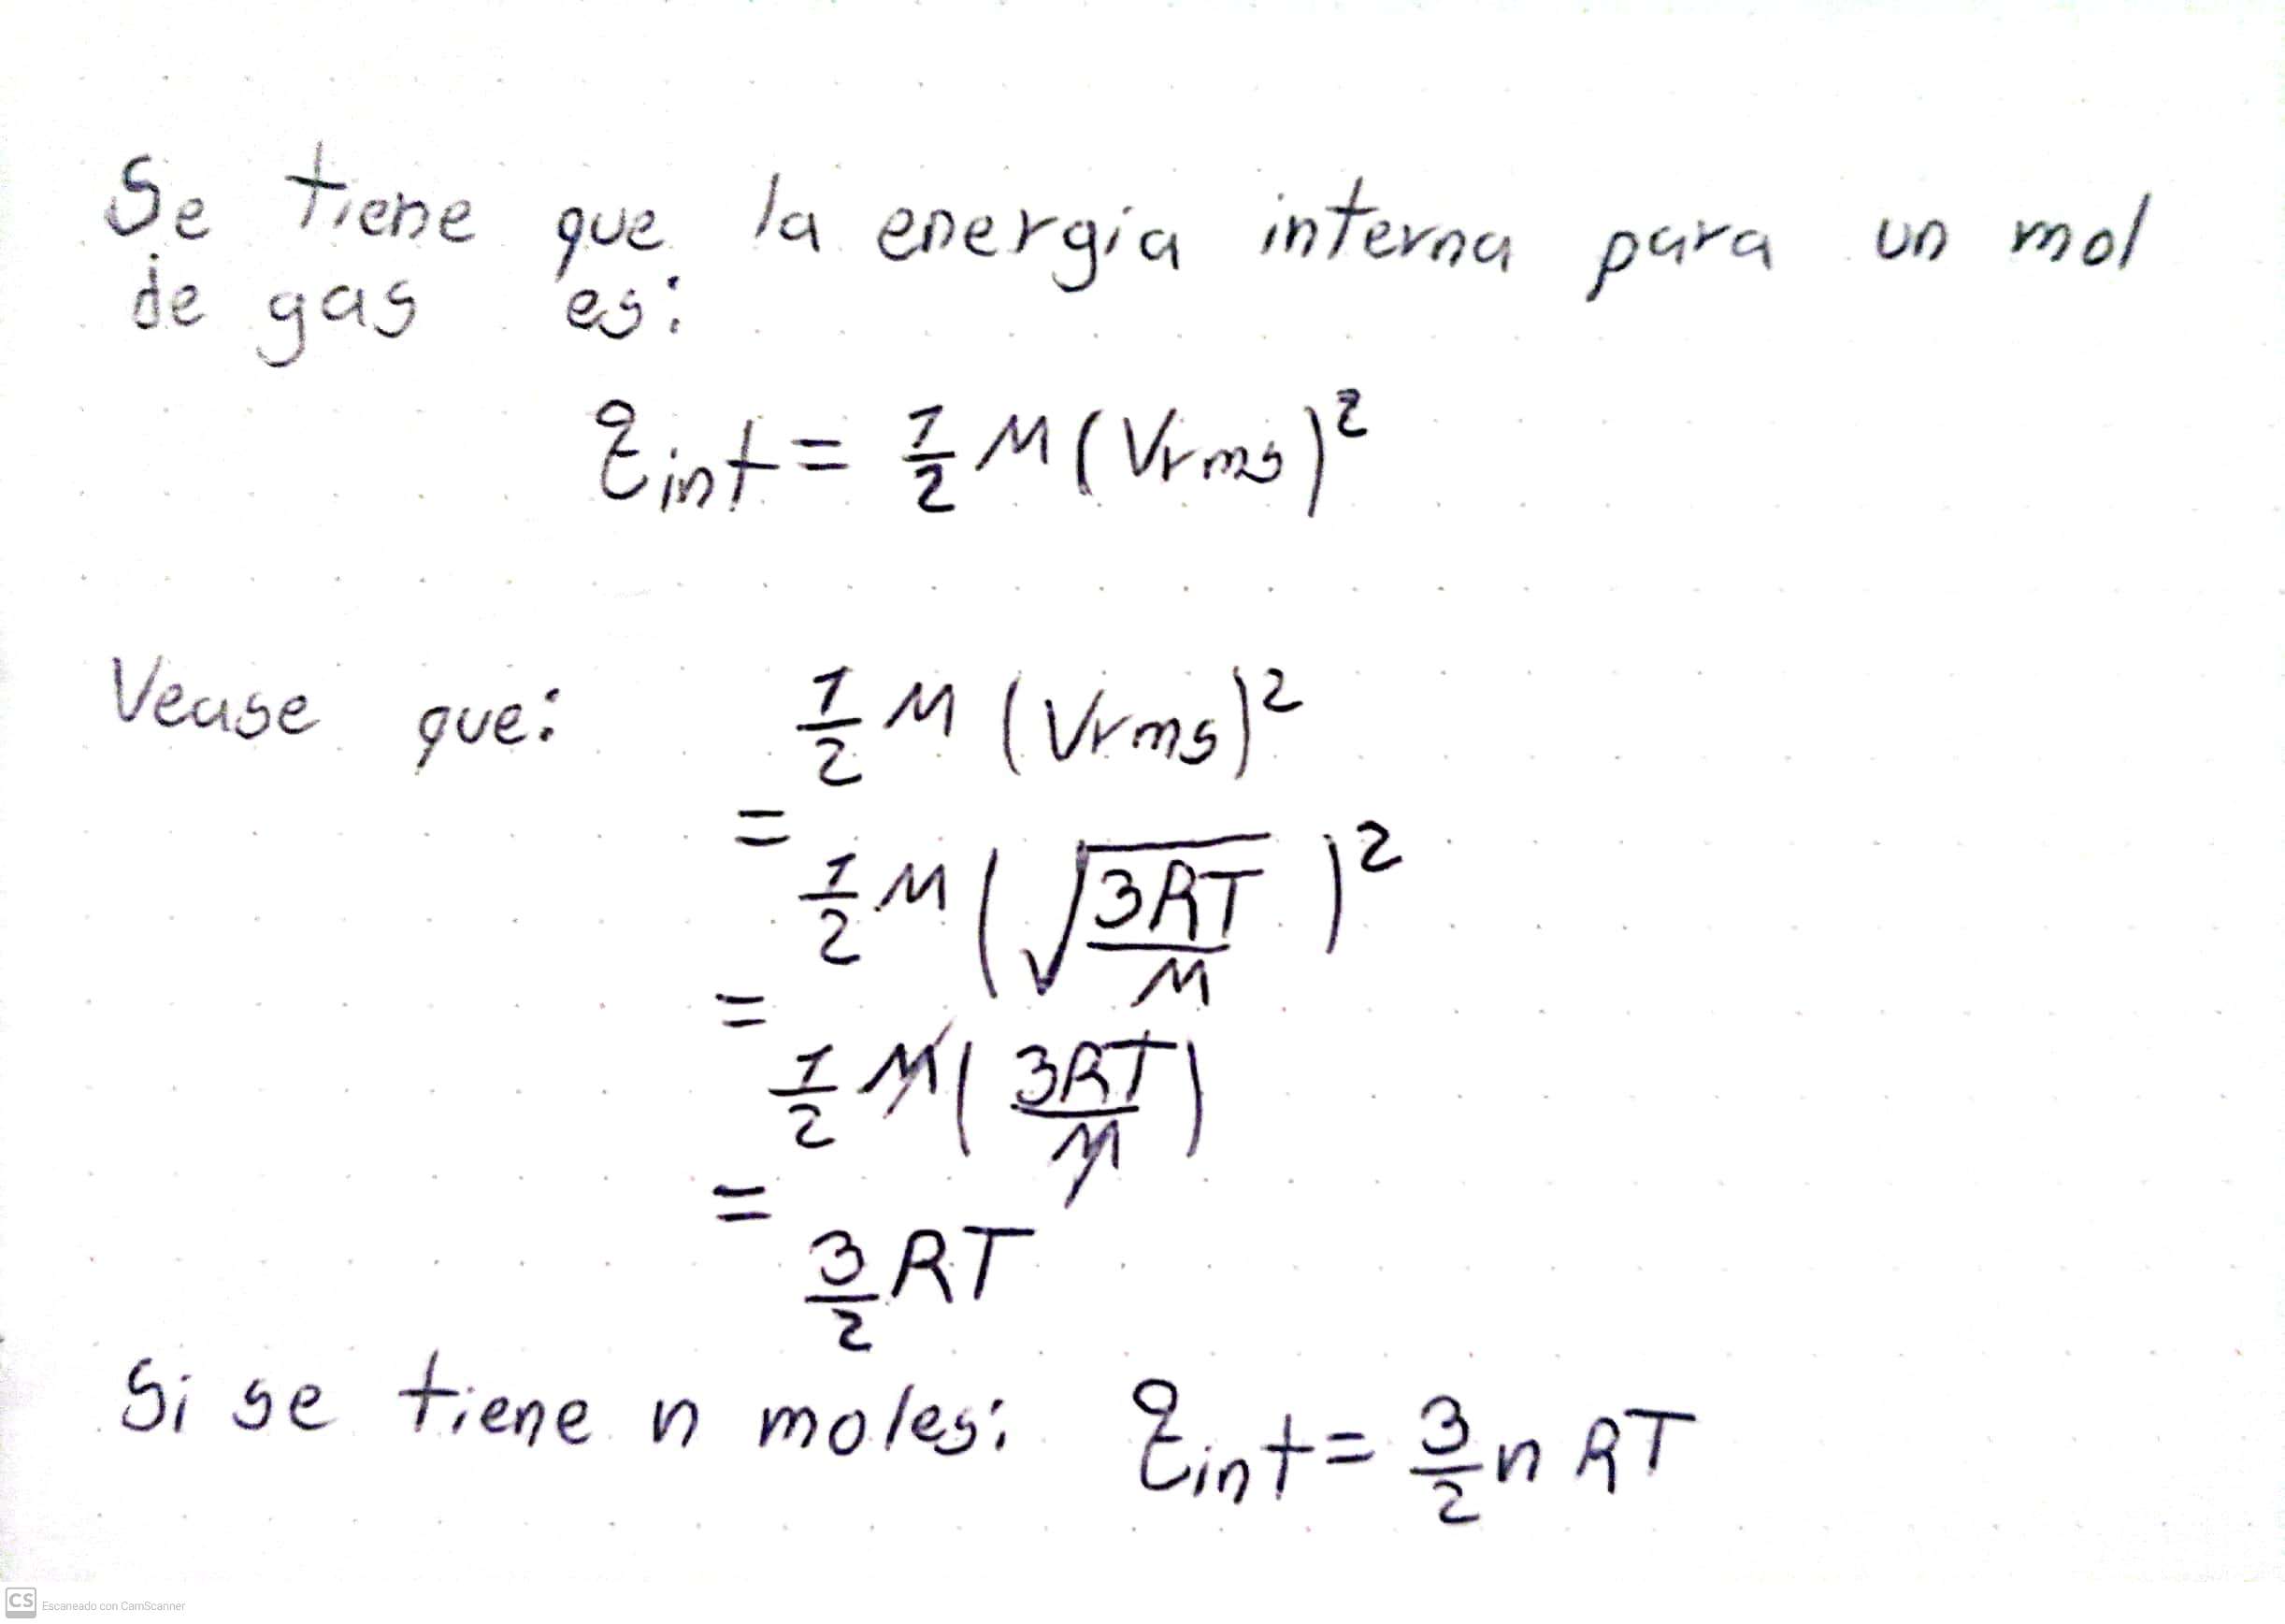 Se tiene que la energia interna para un mol
de gas es:
Eint = 1/2 M (Vrms)²
Vease que: 1/2 M (Vrms)²
=
1/2 M (√(3RT/M))²
=
1/2 M (3RT/M)
=
3/2 RT
Si se tiene n moles: Eint = 3/2 n RT
CS Escaneado con CamScanner